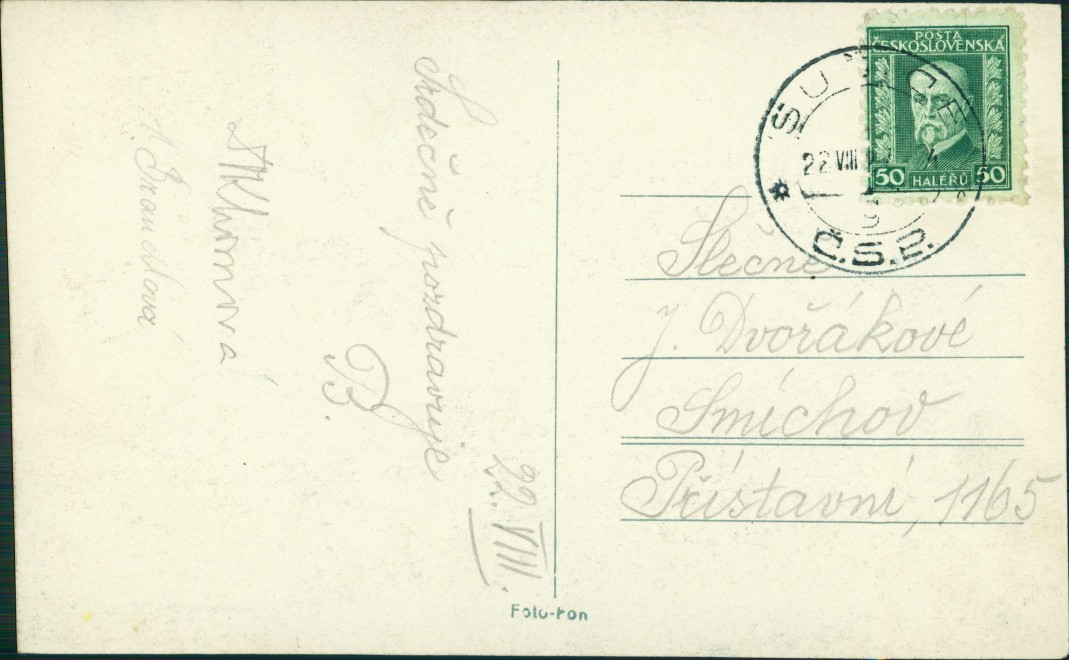 22. VIII.
Srdečně pozdravuje
B.
Klímová
A. Brandlová
POŠTA
ČESKOSLOVENSKÁ
50 HALÉŘŮ 50
22 VIII
Č.S.2.
Slečně
J. Dvořákové
Smíchov
Přístavní, 1165
Foto-Fon